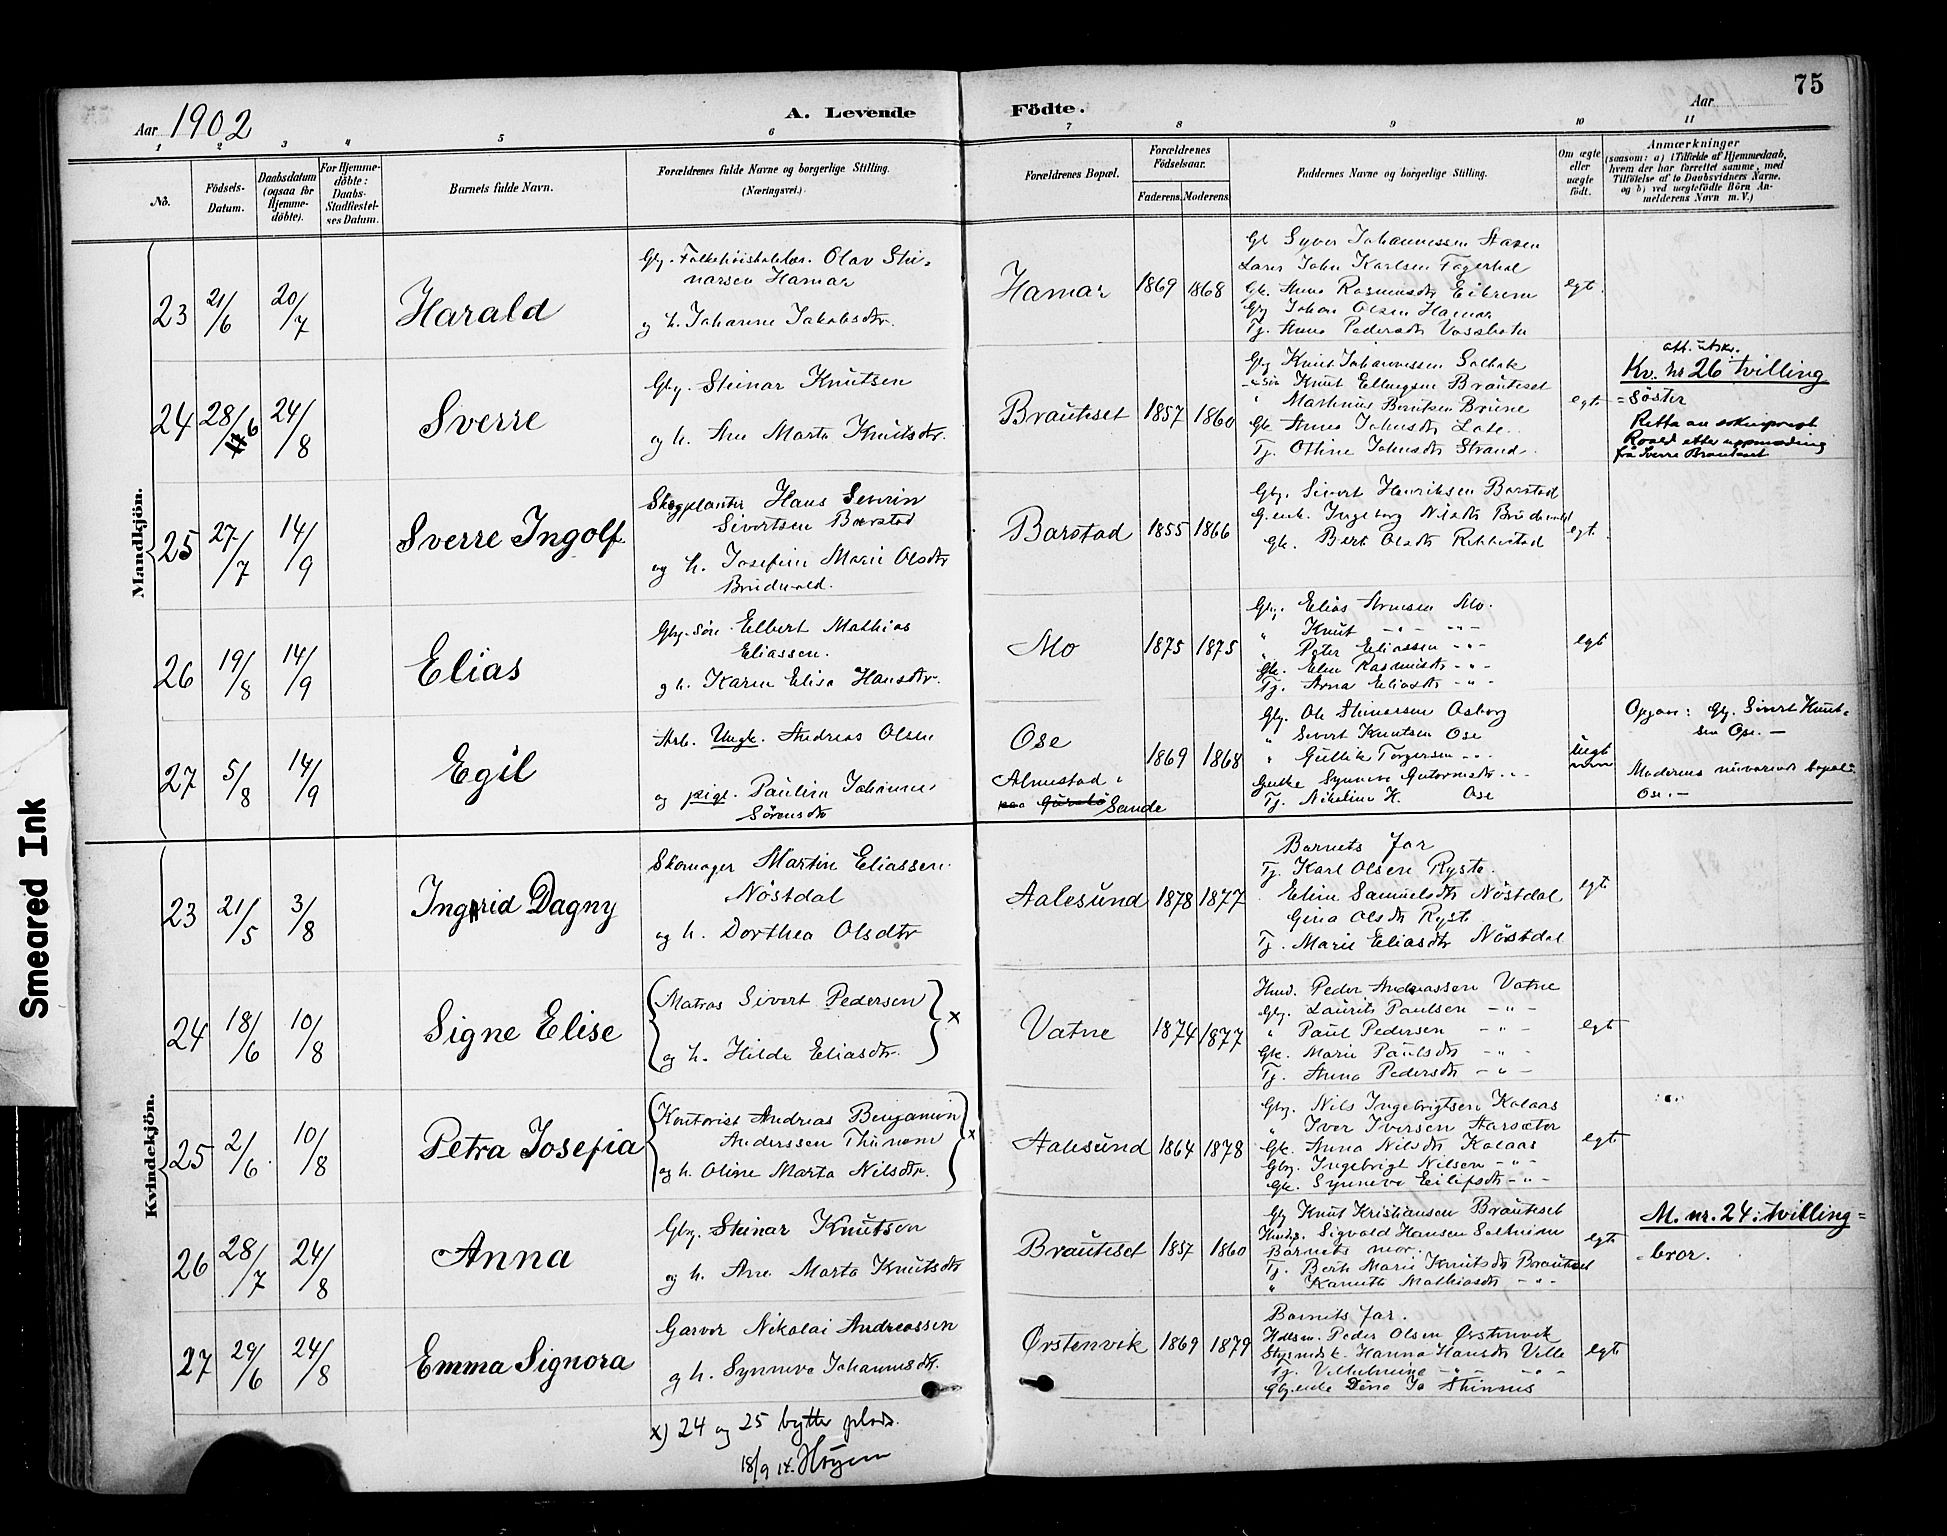 75
Aar 1902
A. Levende Födte.
Aar
1 2 3 4 5 6 7 8 9 10 11
No.
Födsels-Datum.
Daabsdatum (ogsaa for Hjemmedöbte).
For Hjemmedöbte: Daabs-Stadfæstelses Datum.
Barnets fulde Navn.
Forældrenes fulde Navne og borgerlige Stilling. (Næringsvei.)
Forældrenes Bopæl.
Forældrenes Födselsaar.
Faderens. Moderens.
Faddernes Navne og borgerlige Stilling.
Om ægte eller uægte født.
Anmærkninger
(saasom: a) i Tilfælde af Hjemmedaab, hvem der har forrettet samme, med Tilföielse af to Daabsvidners Navne, og b) ved uægtefödte Börn Anmelderens Navn m. V.)
Mandkjön.
23 21/6 20/7 Harald
Olav Stenarsen Hamar
og h. Johanne Jakobsdtr.
Hamar 1869 1868
Gb Syver Johannessen
John Karlsen
Gk. Anna Rasmusdtr Eikrem
Gbj Johan Olsen Hamar
Tj. Anna Pedersdtr
egt.
24 28/6 24/8 Sverre
Gbj. Steinar Knutsen
og h. Ane Marta Knutsdtr.
Brauteset 1857 1860
Gbj Knut Johannessen Solbak
Knut Ellingsen Brauteset
" Martinus Berntsen Brune
Gk. Anna Johnsdtr
Tj. Oline Johnsdtr Strand.
egt.
att. utskr.
Kv. nr 26 tvilling
= söster
Retta av sokneprest
Roald etter uppmoding
frå Sverre Brauteset
25 27/7 14/9 Sverre Ingolf
Skogplanter Hans Severin
Sivertsen Barstad
og h. Josefine Marie Olsdtr
Barstad 1855 1866
Gbj. Sivert Henriksen Barstad
Ingeborg Nilsdtr
Gk. Berte Olsdtr
egt.
26 19/8 14/9 Elias
Gbj. sön Elbert Mathias
Eliassen.
og h. Karen Elisa Hansdtr.
Mo 1875 1875
Gbj. Elias Arnesen Mo.
" Knut -"- -"-
" Peter Eliassen -"-
Gk. Elen Rasmusdtr -"-
Tj. Anna Eliasdtr -"-
egt
27 5/8 14/9 Egil
Arb. Ungk. Andreas Olsen
og pige Pauline Johanne
Sörensdtr
Ose
Almestad
Sande
1869 1868
Gbj. Ole Steinarsen Aaberg
" Sivert Knutsen Ose
" Gullik Torgersen -"-
Synneve Gutormsdtr -"-
Tj. Nikoline K. Ose
uegt
Opgav: Gbj. Sivert Knutsen Ose. -
Moderens nuværende bopæl:
Ose. -
Kvindekjön.
23 21/5 3/8 Ingrid Dagny
Skomager Martin Eliassen
Nöstdal
og h. Dorthea Olsdtr
Aalesund 1878 1877
Barnets far
Tj. Karl Olsen Ryste.
Eline Samuelsdtr Nöstdal
Gina Olsdtr Ryste
Tj. Marie Eliasdtr Nöstdal
egt
24 18/6 10/8 Signe Elise
Matros Sivert Pedersen
og h. Hilde Eliasdtr. x
Vatne 1874 1877
Peder Andreassen Vatne
Gbj. Laurits Paulsen -"-
" Paul Pedersen -"-
Gk. Marie Paulsdtr -"-
Tj. Anna Pedersdtr -"-
egt
25 2/6 10/8 Petra Josefia
Kontorist Andreas Benjamin
Anderssen
og h. Oline Marta Nilsdtr. x
Aalesund 1864 1878
Gbj. Nils Ingebrigtsen Kolaas
" Iver Iversen Aarsæter
Gk. Anna Nilsdtr Kolaas
Gbj. Ingebrigt Nilsen -"-
Gk. Synneve Eilifsdtr -"-
egt
26 28/7 24/8 Anna
Gbj. Steinar Knutsen
og h. Ane Marta Knutsdtr
Brauteset 1857 1860
Gbj Knut Kristiansen Brauteset
Sigvald Hansen Solheim
Barnets mor.
Tj. Berte Marie Knutsdtr Brauteset
" Mathiasdtr -"-
egt.
M. nr. 24: tvilling=
-bror.
27 29/6 24/8 Emma Signora
Garver Nikolai Andreassen
og h. Synneve Johannesdtr.
Ørstenvik 1869 1879
Barnets far.
Peder Olsen Ørstenvik
Hanna Hansdtr Ville
Tj. Villelmine -"-
egt.
x) 24 og 25 bytter plads.
18/9 14. Höyem
Smeared Ink